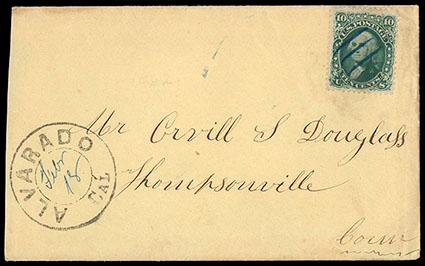 10 U.S. POSTAGE 10
TEN CENTS
Mr Orvill S Douglass
Thompsonville
Conn
ALVARADO
CAL
Febr
13